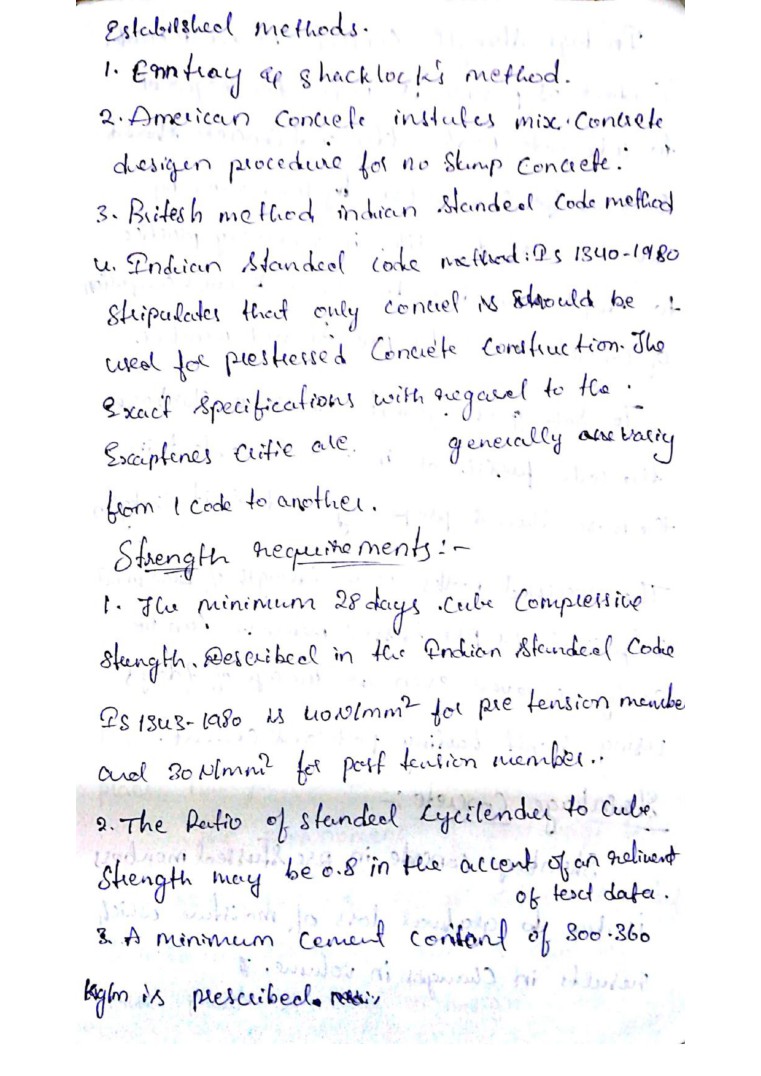 Established methods.
1. Enntray of shacklock's method.
2. American Concrete institutes mix. Concrete
design procedure for no Slump Concrete.
3. British method indian Standed Code method
4. Indian Standed code method: Is 1340-1980
Stipulates that only concret is should be
used for prestressed Concrete Construction. The
Exact Specifications with regared to the
are. generally are variy
from 1 code to another.
Strength requirements:-
1. The minimum 28 days Cube Compressive
Strength. Described in the Indian Standeed Code
Is 1343-1980 is 40N/mm² for pre tension membe
and 30 N/mm² for post tension member..
2. The Ratio of Standed Cycilender to Cube
Strength may be 0.8 in the accent of an relivent
of test data.
3. A minimum cement content of 300.360
is prescribed.